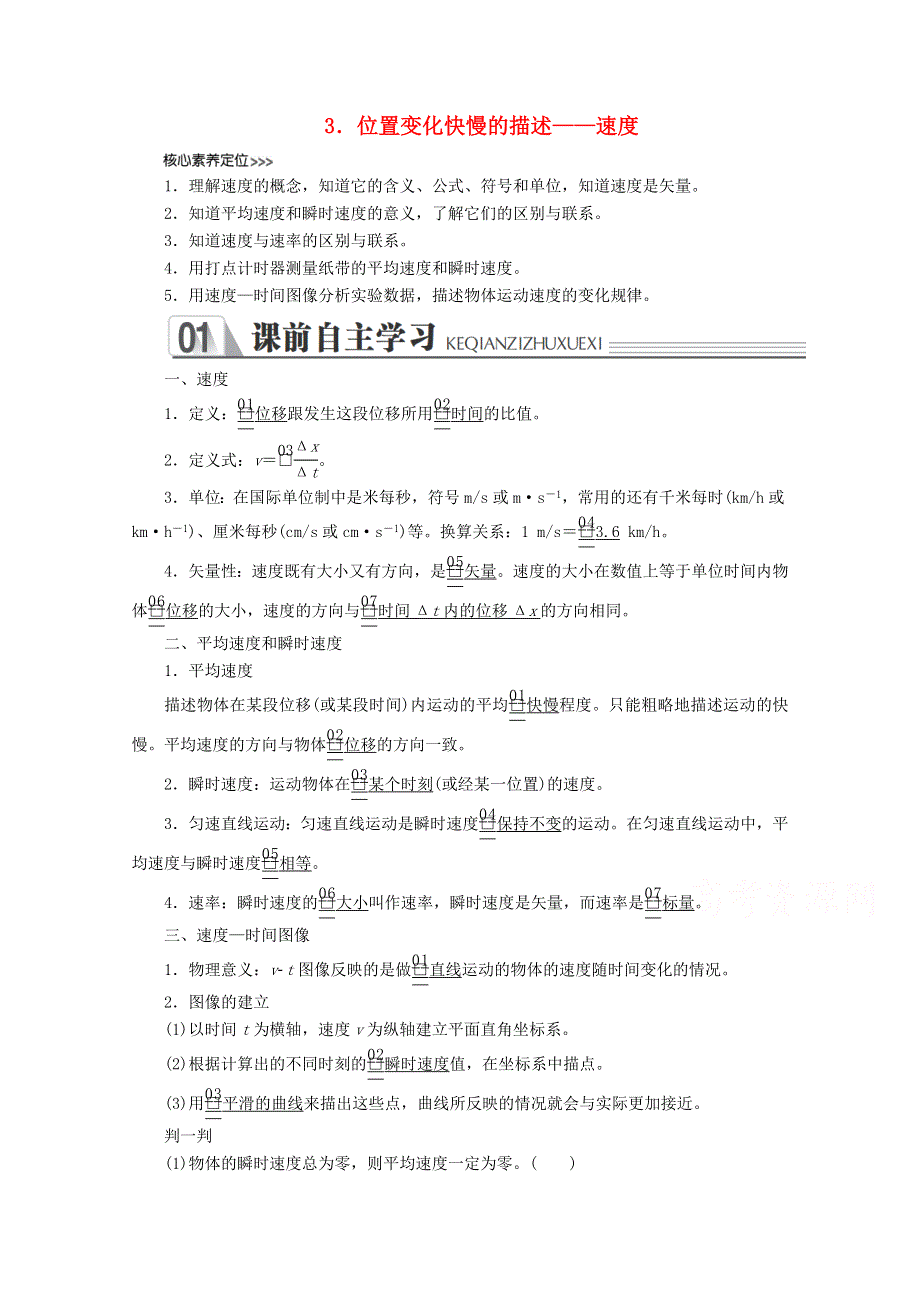 3．位置变化快慢的描述——速度
核心素养定位>>>
1．理解速度的概念，知道它的含义、公式、符号和单位，知道速度是矢量。
2．知道平均速度和瞬时速度的意义，了解它们的区别与联系。
3．知道速度与速率的区别与联系。
4．用打点计时器测量纸带的平均速度和瞬时速度。
5．用速度—时间图像分析实验数据，描述物体运动速度的变化规律。
01 课前自主学习 KEQIANZIZHUXUEXI
一、速度
1．定义：□01位移跟发生这段位移所用□02时间的比值。
2．定义式：v＝□03Δx/Δt。
3．单位：在国际单位制中是米每秒，符号 m/s 或 m·s－1，常用的还有千米每时(km/h 或
km·h－1)、厘米每秒(cm/s 或 cm·s－1)等。换算关系：1 m/s＝□043.6 km/h。
4．矢量性：速度既有大小又有方向，是□05矢量。速度的大小在数值上等于单位时间内物
体□06位移的大小，速度的方向与□07时间 Δt 内的位移 Δx 的方向相同。
二、平均速度和瞬时速度
1．平均速度
描述物体在某段位移(或某段时间)内运动的平均□01快慢程度。只能粗略地描述运动的快
慢。平均速度的方向与物体□02位移的方向一致。
2．瞬时速度：运动物体在□03某个时刻(或经某一位置)的速度。
3．匀速直线运动：匀速直线运动是瞬时速度□04保持不变的运动。在匀速直线运动中，平
均速度与瞬时速度□05相等。
4．速率：瞬时速度的□06大小叫作速率，瞬时速度是矢量，而速率是□07标量。
高考资源网
三、速度—时间图像
1．物理意义：v­t 图像反映的是做□01直线运动的物体的速度随时间变化的情况。
2．图像的建立
(1)以时间 t 为横轴，速度 v 为纵轴建立平面直角坐标系。
(2)根据计算出的不同时刻的□02瞬时速度值，在坐标系中描点。
(3)用□03平滑的曲线来描出这些点，曲线所反映的情况就会与实际更加接近。
判一判
(1)物体的瞬时速度总为零，则平均速度一定为零。(　　)